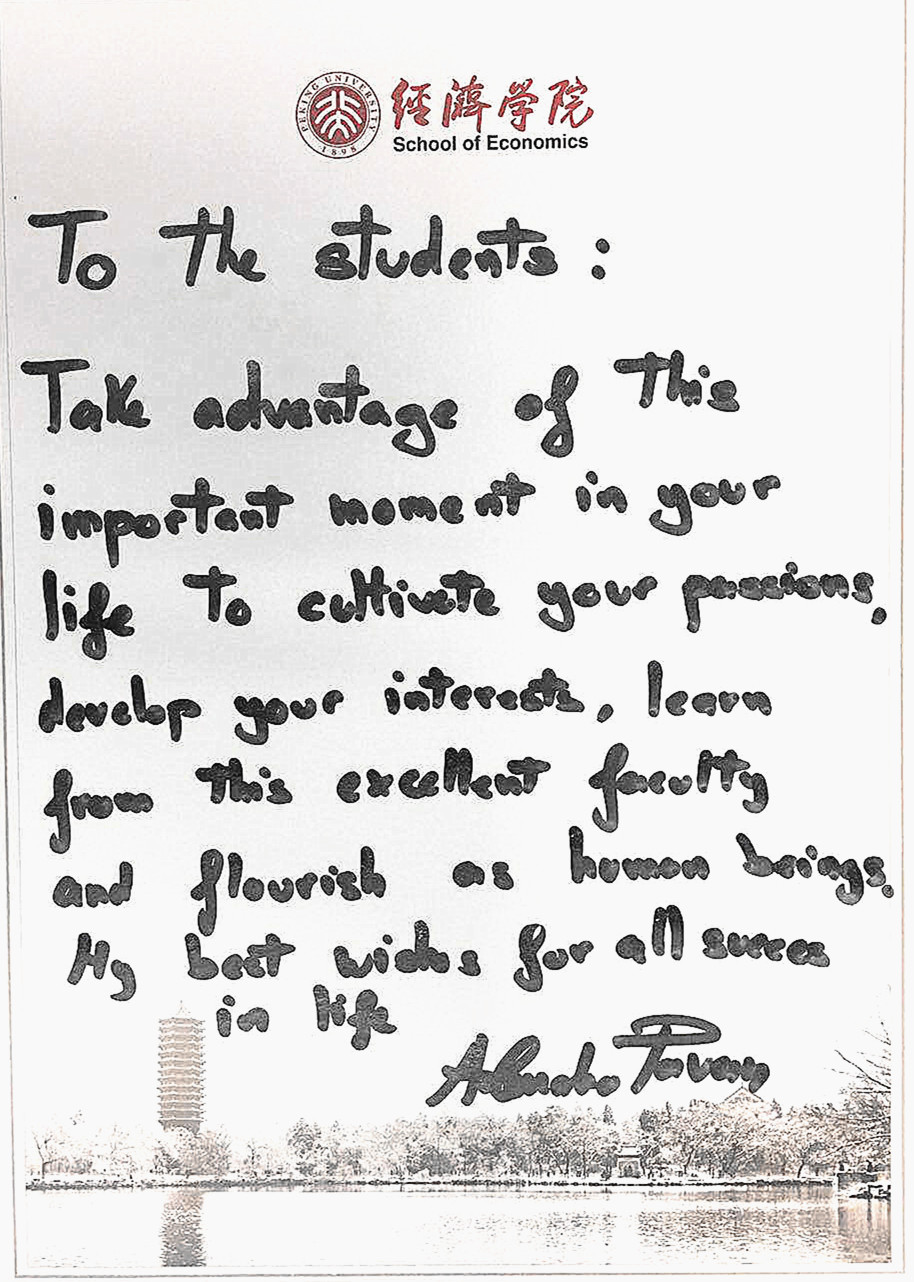 PEKING UNIVERSITY
1898
經濟學院
School of Economics
To the students:
Take advantage of this
important moment in your
life to cultivate your passions,
develop your interests, learn
from this excellent faculty
and flourish as human beings.
My best wishes for all succes
in life
Pavan